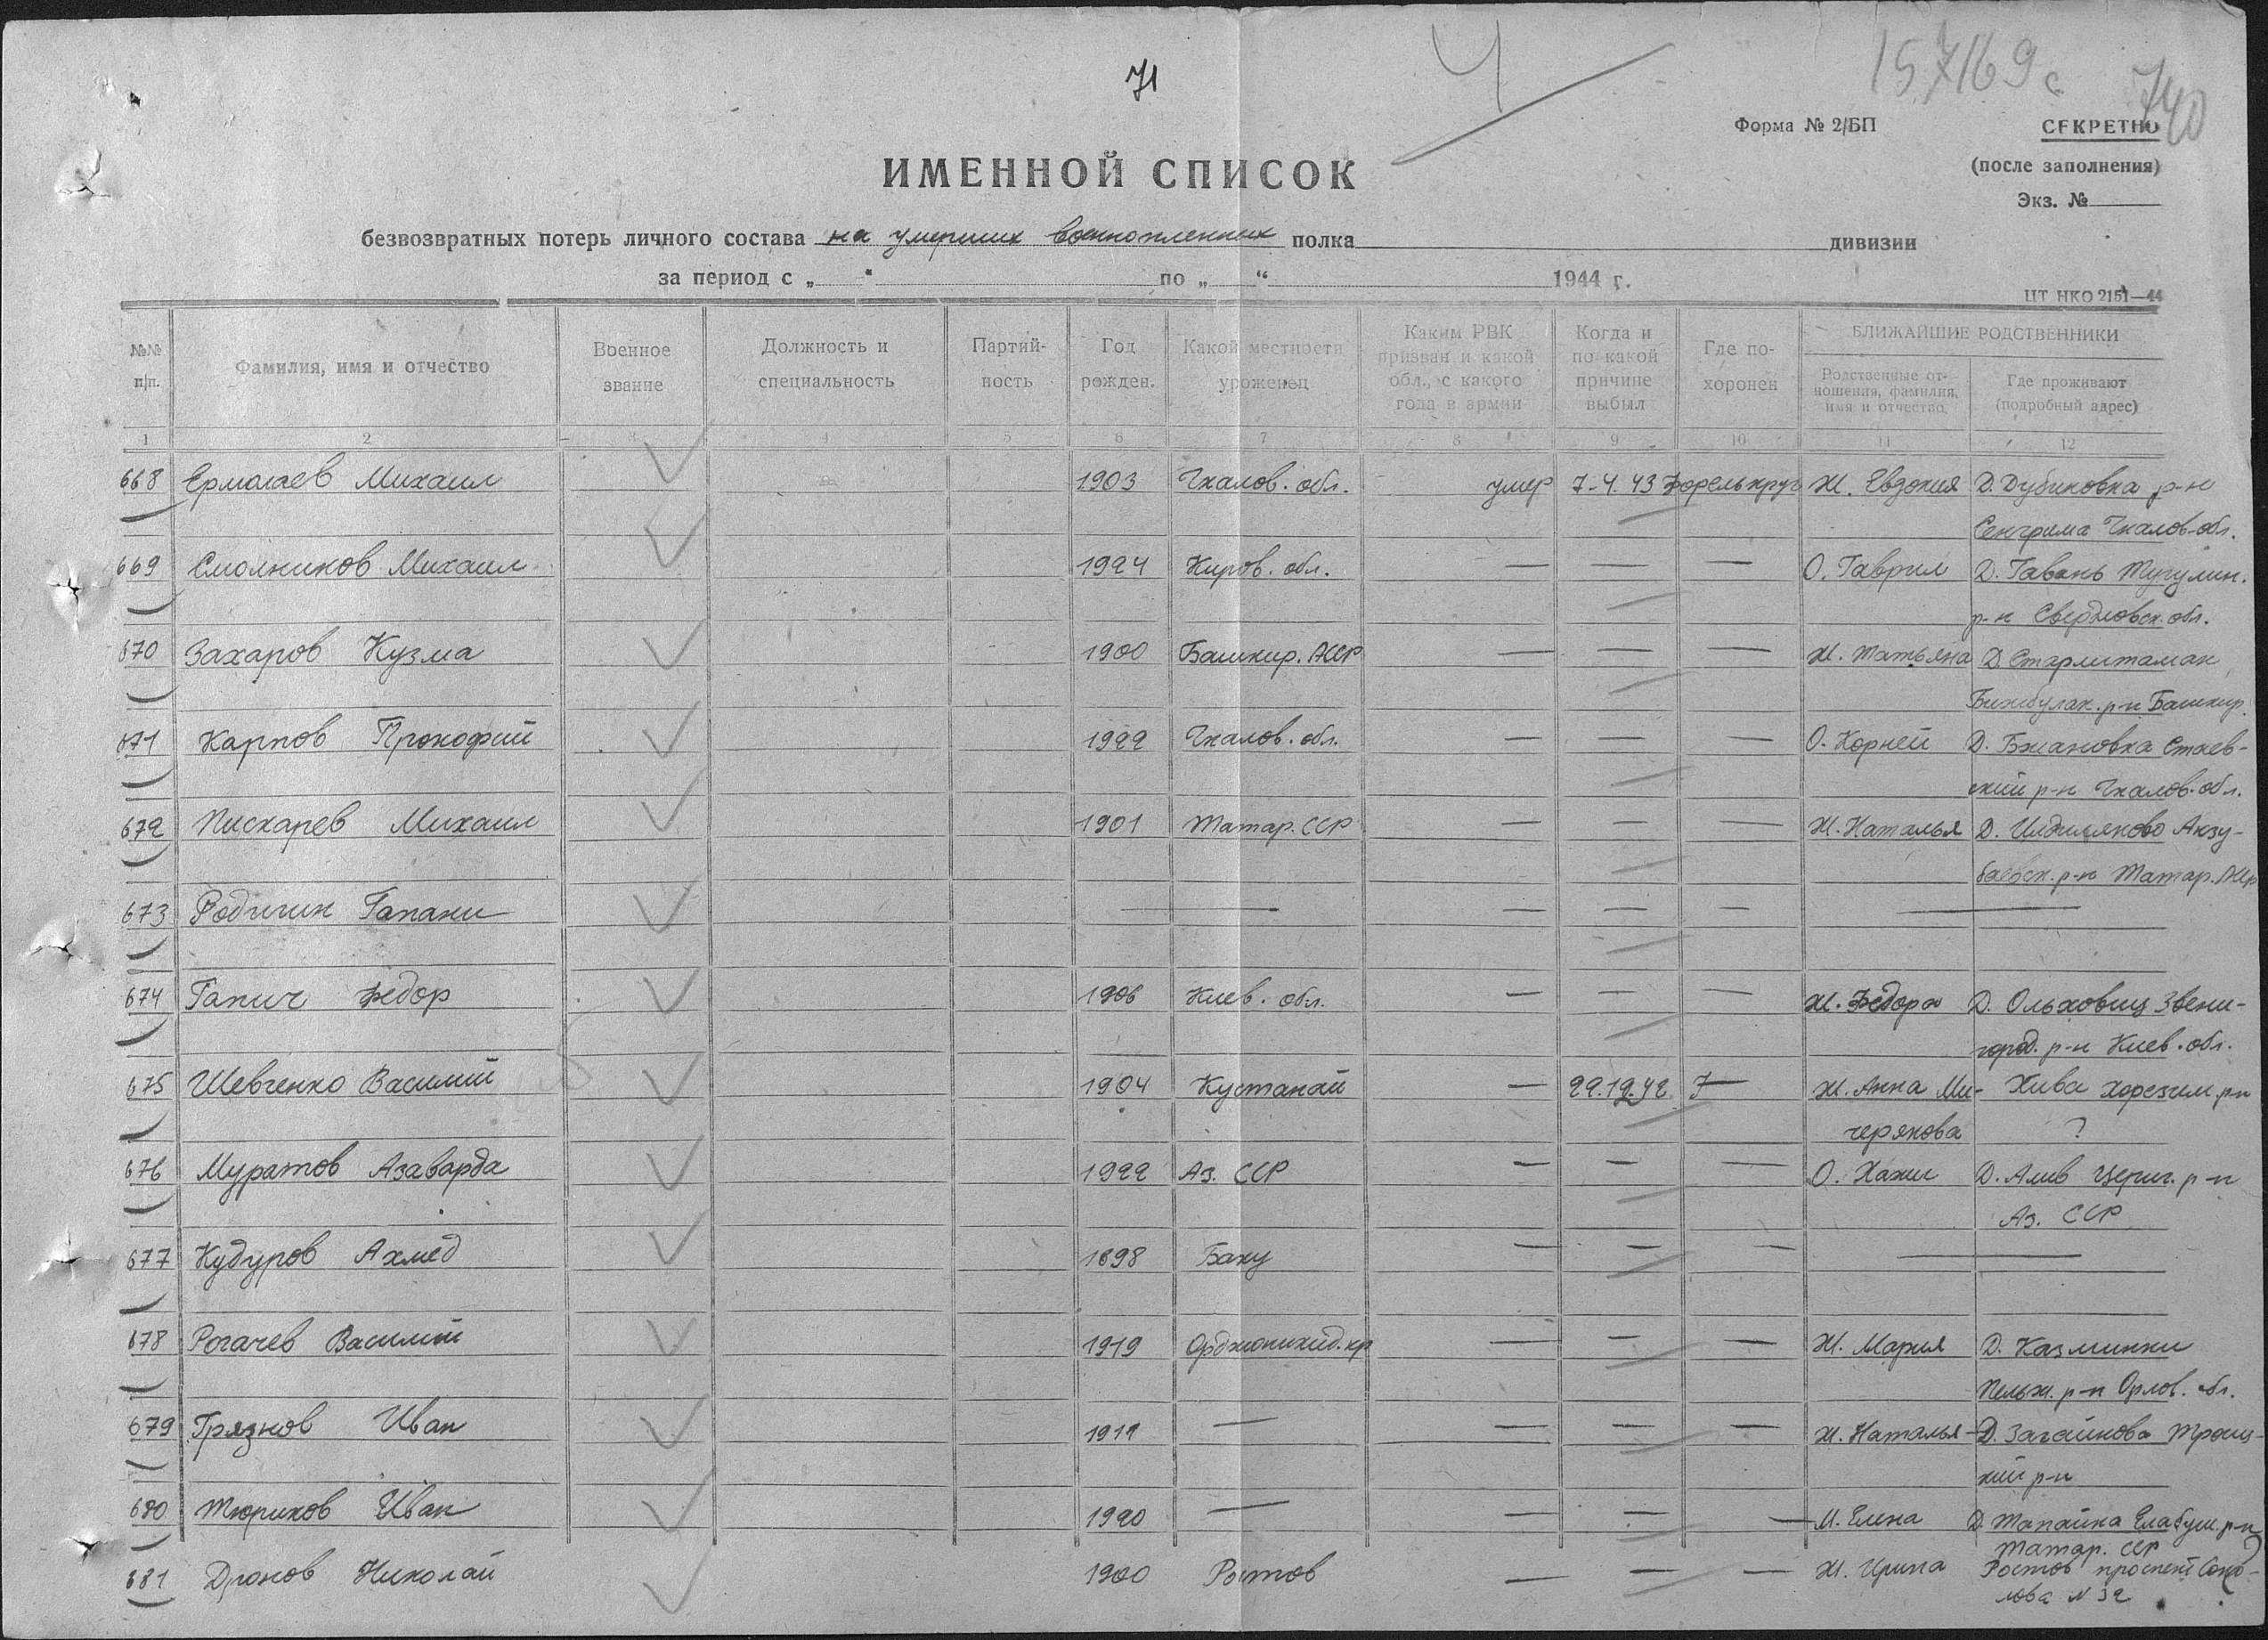 71
Ч
157169с
740
Форма № 2/БП
СЕКРЕТНО
(после заполнения)
Экз. №
ИМЕННОЙ СПИСОК
безвозвратных потерь личного состава на умерших военнопленных полка дивизии
за период с „ “ по „ “ 1944 г.
ЦТ НКО 2151—44
№№ п/п. Фамилия, имя и отчество Военное звание Должность и специальность Партийность Год рожден. Какой местности уроженец Каким РВК призван и какой обл., с какого года в армии Когда и по какой причине выбыл Где похоронен БЛИЖАЙШИЕ РОДСТВЕННИКИ Родственные отношения, фамилия, имя и отчество. Где проживают (подробный адрес)
1 2 3 4 5 6 7 8 9 10 11 12
668 Ермолаев Михаил 1903 Чкалов. обл. умер 7-4.43 Форелькруг Ж. Евдокия Д. Дубиновка р-н
Чкалов-обл.
669 Смолников Михаил 1924 Киров. обл. — — — О. Гаврил Д. Гавань Тугулин.
р-н Свердловск. обл.
670 Захаров Кузма 1900 Башкир. АССР — — — Ж. Татьяна Д. Старлитамак
Бижбулак. р-н Башкир.
671 Карпов Прокофий 1922 Чкалов. обл. — — — О. Корней Д. Бжановка Стаев-
ский р-н Чкалов. обл.
672 Пискарев Михаил 1901 Татар. ССР — — — Ж. Наталья Д. Аксу-
баевск. р-н Татар. АССР
673 Родигин Гапани — — — — —
674 Гапич Федор 1906 Киев. обл. — — — Ж. Федора Д. Ольховиц Звени-
город. р-н Киев. обл.
675 Шевченко Василий 1904 Кустанай — 22.12.42 — Ж. Анна Ми- Хива Хорезим. р-н
черякова ?
676 Муратов Азаварда 1922 Аз. ССР — — — О. Хажи Д. Алив р-н
Аз. ССР
677 Кудуров Ахмед 1898 Баку — — — —
678 Рогачев Василий 1919 Орджоникид. кр — — — Ж. Мария Д. Казминки
р-н Орлов. обл.
679 Грязнов Иван 1911 — — — — Ж. Наталья Д. Загайнова Троиц-
кий р-н
680 Тюриков Иван 1920 — — — — М. Елена Д. Танайка Елабуж. р-н
Татар. ССР
681 Дронов Николай 1900 Ростов — — — Ж. Ирина Ростов проспект Соко-
лова № 32